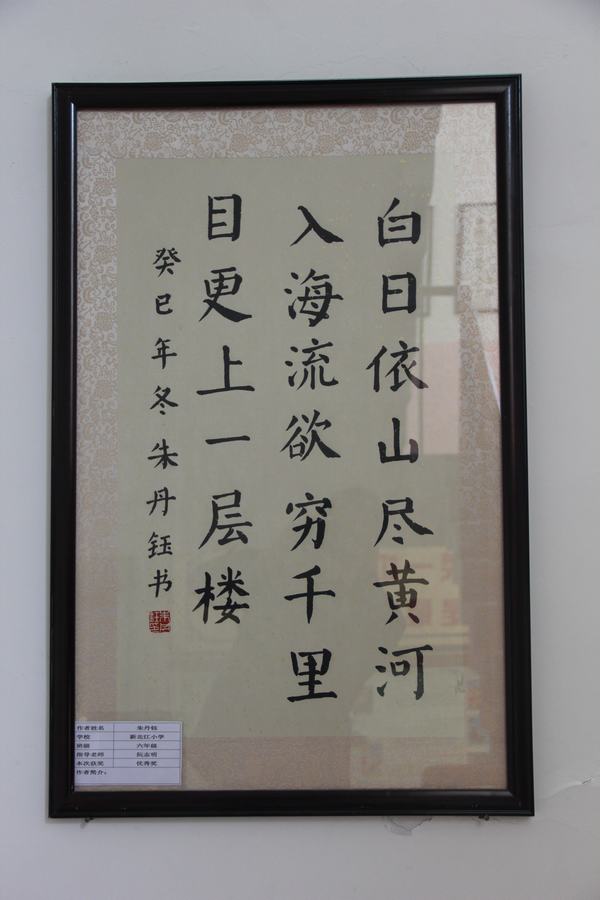 白日依山尽黄河
入海流欲穷千里
目更上一层楼
癸巳年冬朱丹钰书
作者姓名 朱丹钰
学校 新北江小学
班级 六年级
指导老师 阮志明
本次获奖 优秀奖
作者简介: